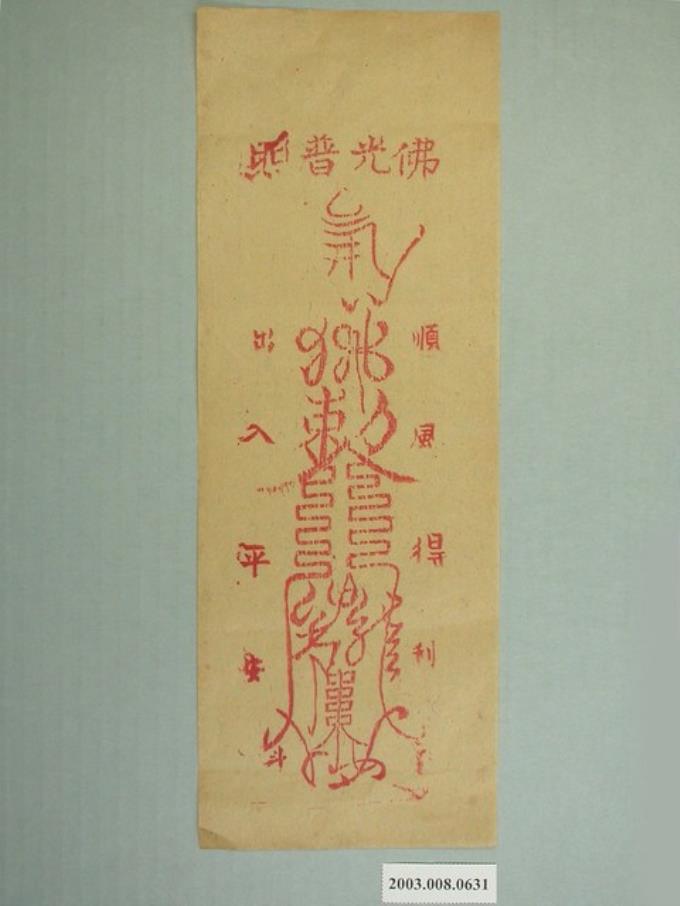 佛光普照
順風得利
勅
出入平安
斗
2003.008.0631